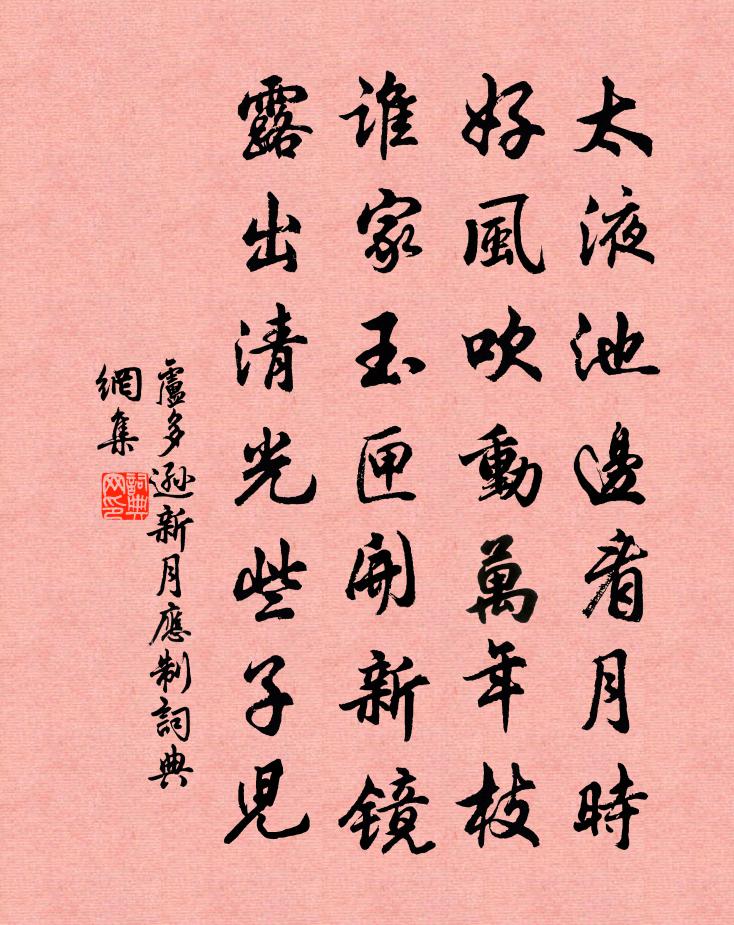 太液池邊看月時
好風吹動萬年枝
誰家玉匣開新鏡
露出清光些子兒
盧多遜新月應制詞典
網集
詞典
网印